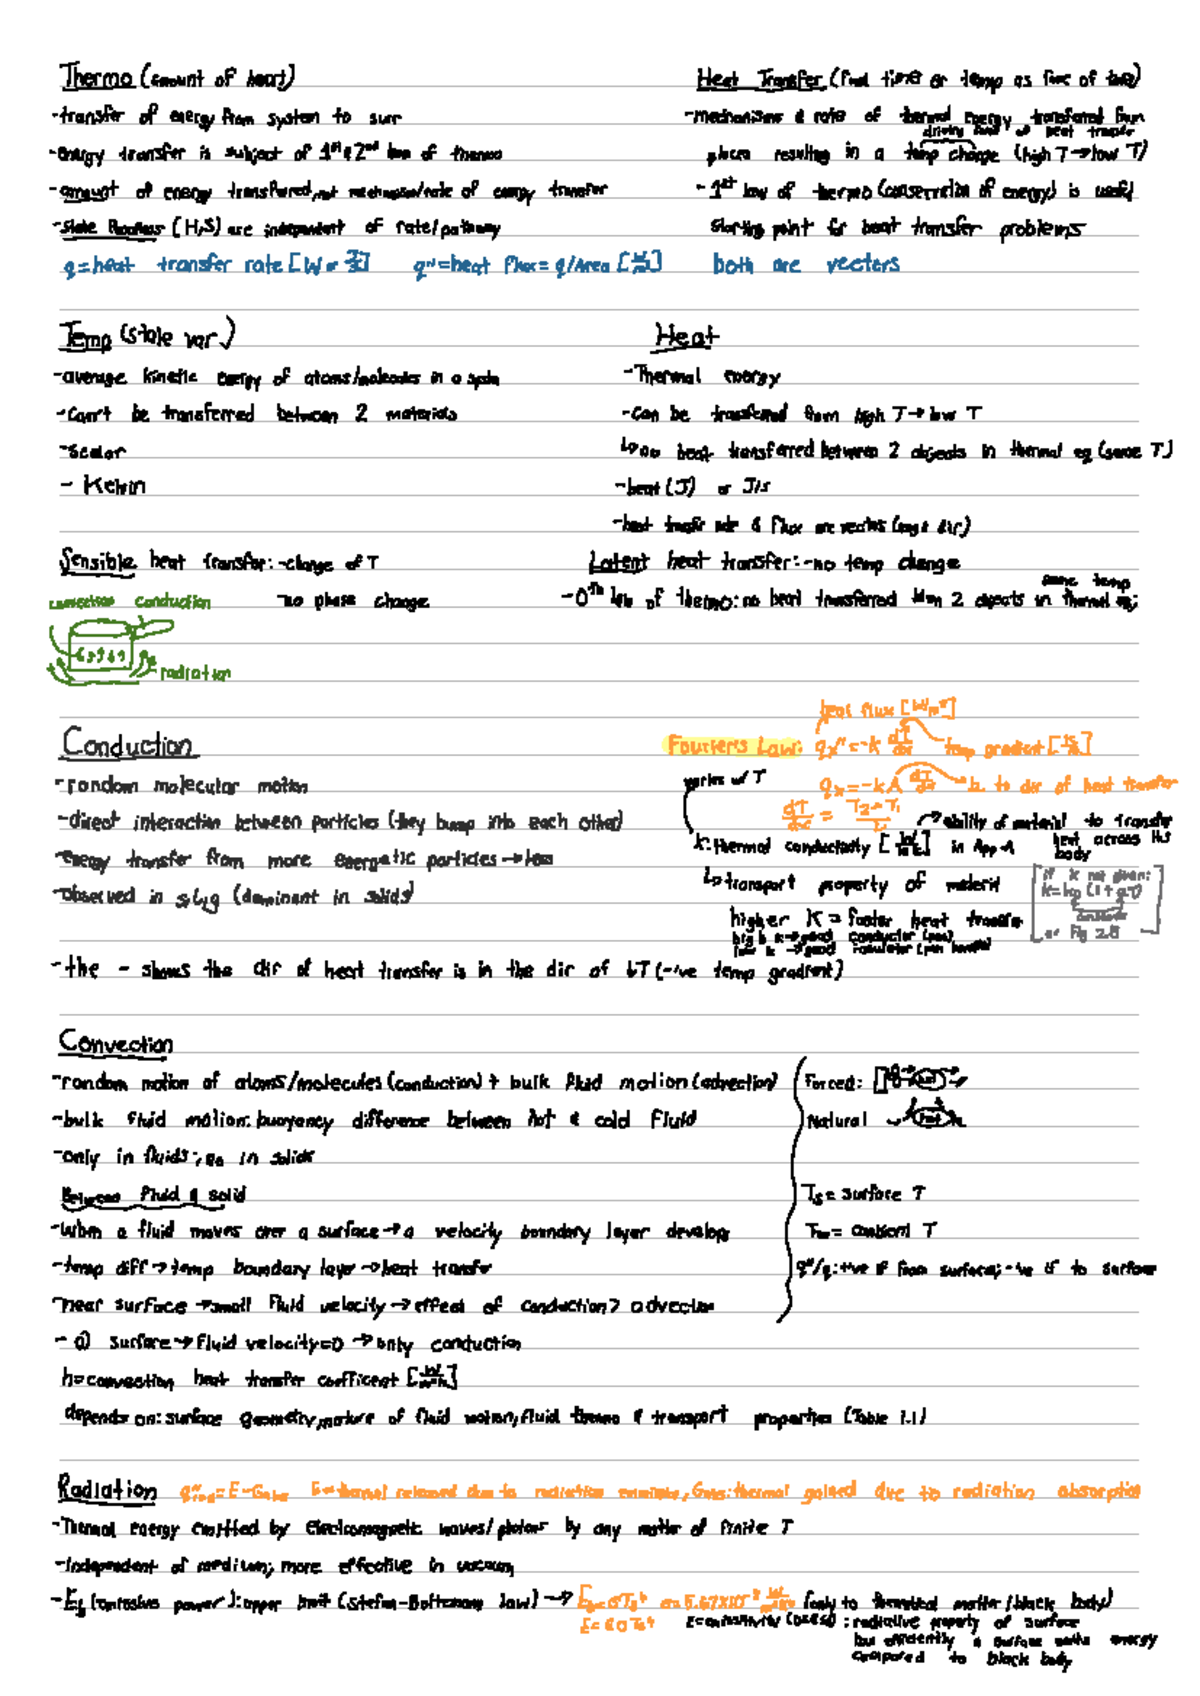 Thermo (amount of heat)
-transfer of energy from system to surr
-energy transfer is subject of 1st & 2nd law of thermo
-amount of energy transferred, not mechanism/rate of energy transfer
-State (H,S) are independent of rate/pathway
Heat Transfer (find time or temp as func of time)
-mechanisms & rate of thermal energy transferred from
driving force of heat transfer
places resulting in a temp change (high T→low T)
-1st law of thermo (conservation of energy) is useful
starting point for heat transfer problems
q=heat transfer rate [W or J/s] q"=heat flux= q/Area [W/m²] both are vectors
Temp (state var.)
-average kinetic energy of atoms/molecules in a
-can't be transferred between 2 materials
-scalar
- Kelvin
Heat
-Thermal energy
-can be transferred from high T→low T
↳no heat transferred between 2 objects in thermal eq (same T)
-heat (J) or J/s
-heat transfer rate & flux are vectors (mag & dir)
Sensible heat transfer: -change of T
-no phase change
Latent heat transfer: -no temp change
same temp
-0th law of thermo: no heat transferred btwn 2 objects in thermal eq;
convection conduction
radiation
Conduction
-random molecular motion
-direct interaction between particles (they bump into each other)
-energy transfer from more energetic particles→less
-observed in s,l,g (dominant in solids)
heat flux [W/m²]
Fourier's Law: qx"=-k dT/dx temp gradient [K/m]
varies w/ T
qx=-kA dT/dx to dir of heat transfer
dT/dx = T2-T1/L
ability of material to transfer
heat across its
body
k: thermal conductivity [W/m·K] in App-A
↳transport property of material
if k not given:
or Fig 2.8
higher k = faster heat transfer
high k→good conductor (pan)
low k→good insulator (pan handle)
-the - shows the dir of heat transfer is in the dir of ↓T (-'ve temp gradient)
Convection
-random motion of atoms/molecules (conduction) + bulk fluid motion (advection)
-bulk fluid motion: buoyancy difference between hot & cold fluid
-only in fluids; no in solids
Between fluid & solid
-When a fluid moves over a surface→a velocity boundary layer develops
-temp diff→temp boundary layer→heat transfer
-near surface→small fluid velocity→effect of conduction > advection
- @ surface→fluid velocity=0→only conduction
h=convection heat transfer coefficent [W/m²·K]
depends on: surface geometry, nature of fluid motion, fluid thermo & transport properties (Table 1.1)
Forced:
Natural
Ts= surface T
T∞= ambient T
q"/q: +ve if from surface; -ve if to surface
Radiation q"rad=E-Gabs E=thermal released due to radiation emission, Gabs: thermal gained due to radiation absorption
-Thermal energy emitted by electromagnetic waves/photons by any matter of finite T
-independent of medium; more effective in vacuum
-Eb (emissive power): upper limit (Stefan-Boltzmann law) → Eb=σTs⁴ σ=5.67x10⁻⁸ W/m²K⁴ (only to theoretical matter/black body)
E=εσTs⁴ ε=emissivity (0≤ε≤1): radiative property of surface
how efficiently a surface emits energy
compared to black body